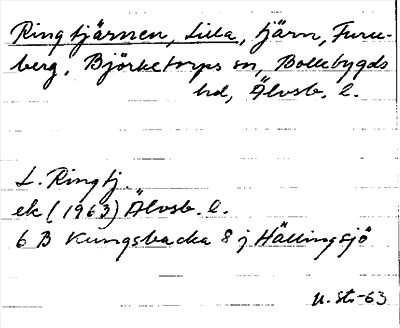 Ringtjärnen, Lilla, tjärn, Furu-
berg, Björketorps sn, Bollebygds
hd, Älvsb. l.
L. Ringtj.
ek (1963) Älvsb. l.
6 B Kungsbacka 8 j Hällingsjö
U. Sts-63